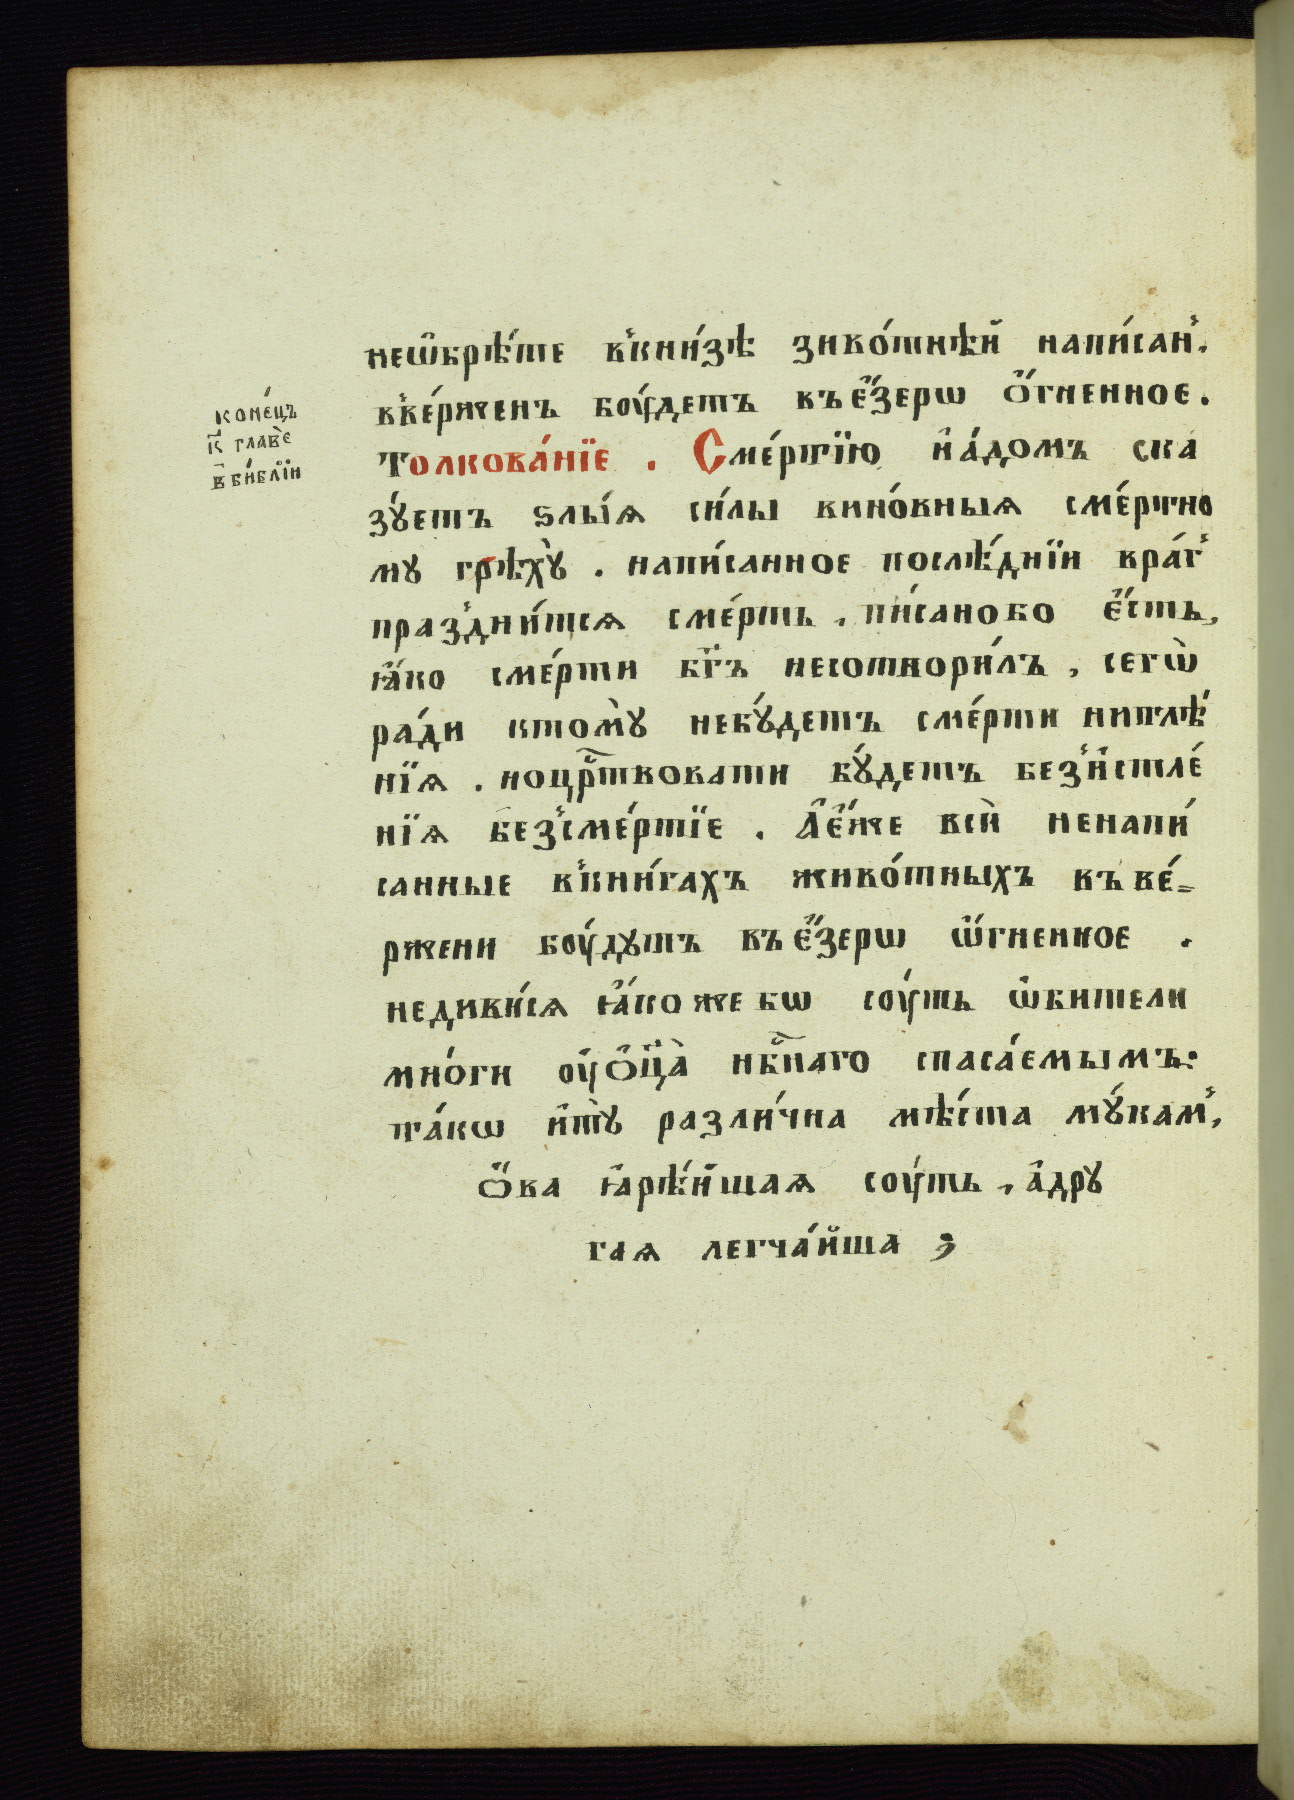 неѡ҆брѣ́те в̾кни́зѣ зиво́тнѣй напи́сан̾.
в̾ве́рженъ боу́детъ въ є҆́зерѡ ѻ҆́гненное.
конє́цъ
к҃ главѣ̀
в҃ би́блїи
Толкова́нїе . Сме́ртїю и҆а́домъ ска
зꙋ́етъ ѕлы́ѧ си́лы вино́вныѧ сме́ртно
мꙋ грѣхꙋ̀ . напи́санное послѣ́днїи вра́г̾
празд̾ни́тсѧ сме́рть , пи́санобо є҆́сть,
ꙗ҆́ко сме́рти бг҃ъ несотвори́лъ , сегѡ̀
ра́ди ктомꙋ̀ небꙋ́детъ сме́рти нитлѣ́
нїѧ . ноцрⷭ҇твовати бꙋ́детъ без̾и҆стле́
нїѧ без̾сме́ртїе . А҆є҆́же всѝ ненапи́
санные в̾кни́гахъ живо́тныхъ въ ве́=
ржени боу́дꙋтъ въ є҆́зерѡ ѡ҆́гненное .
недиви́сѧ ꙗ҆́коже бѡ соу́ть ѡ҆бители
мно́ги оу҆ѻ҆ц҃а̀ нбⷭ҇наго спаса́емымъ:
та́кѡ и҆тꙋ̀ разли́чна мѣ́ста мꙋ́кам̾,
ѻ҆́ва ꙗ҆рѣ́йшаѧ соу́ть , а҆дрꙋ
гаѧ легча́йша ;